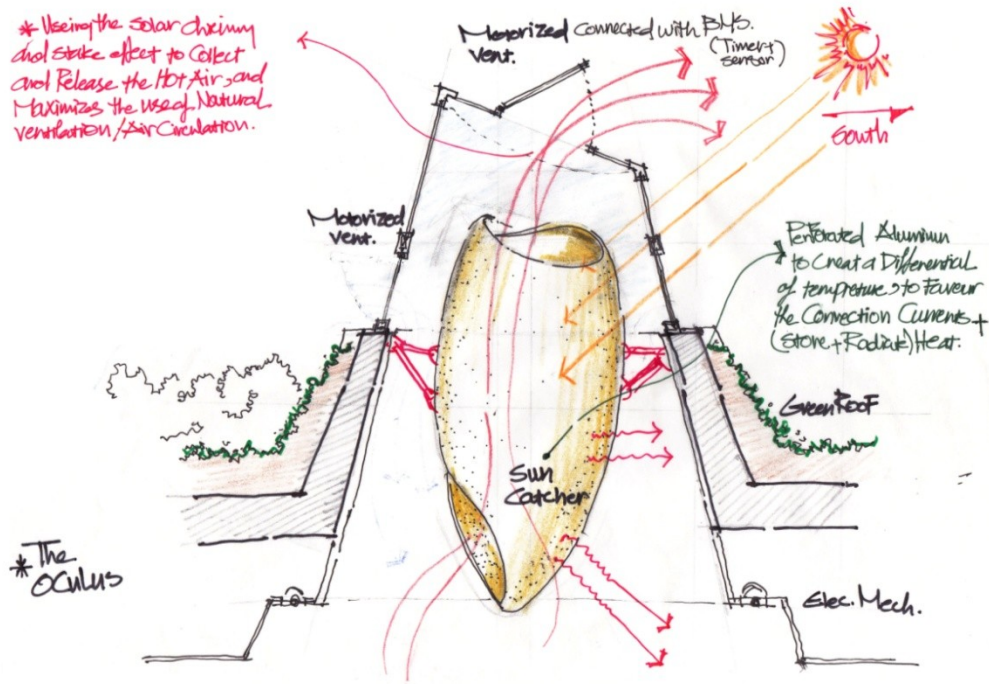 * Useing the solar chimny
and stake effect to Collect
and Release the Hot Air, and
Maximizes the use of Natural
ventilation / Air Circulation.
Motorized Connected with BMS.
vent.
(Timer +
sensor)
South
Motorized
vent.
Perforated Aluminum
to Creat a Differential
of tempreture, to Favour
the Connection Currents +
(Store + Radiate) Heat.
Green Roof
Sun
Catcher
* The
OCULUS
Elec. Mech.